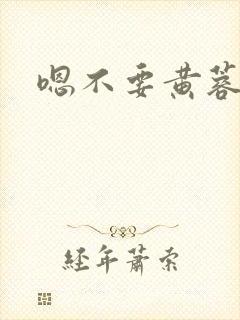 嗯不要黄蓉
经年萧索